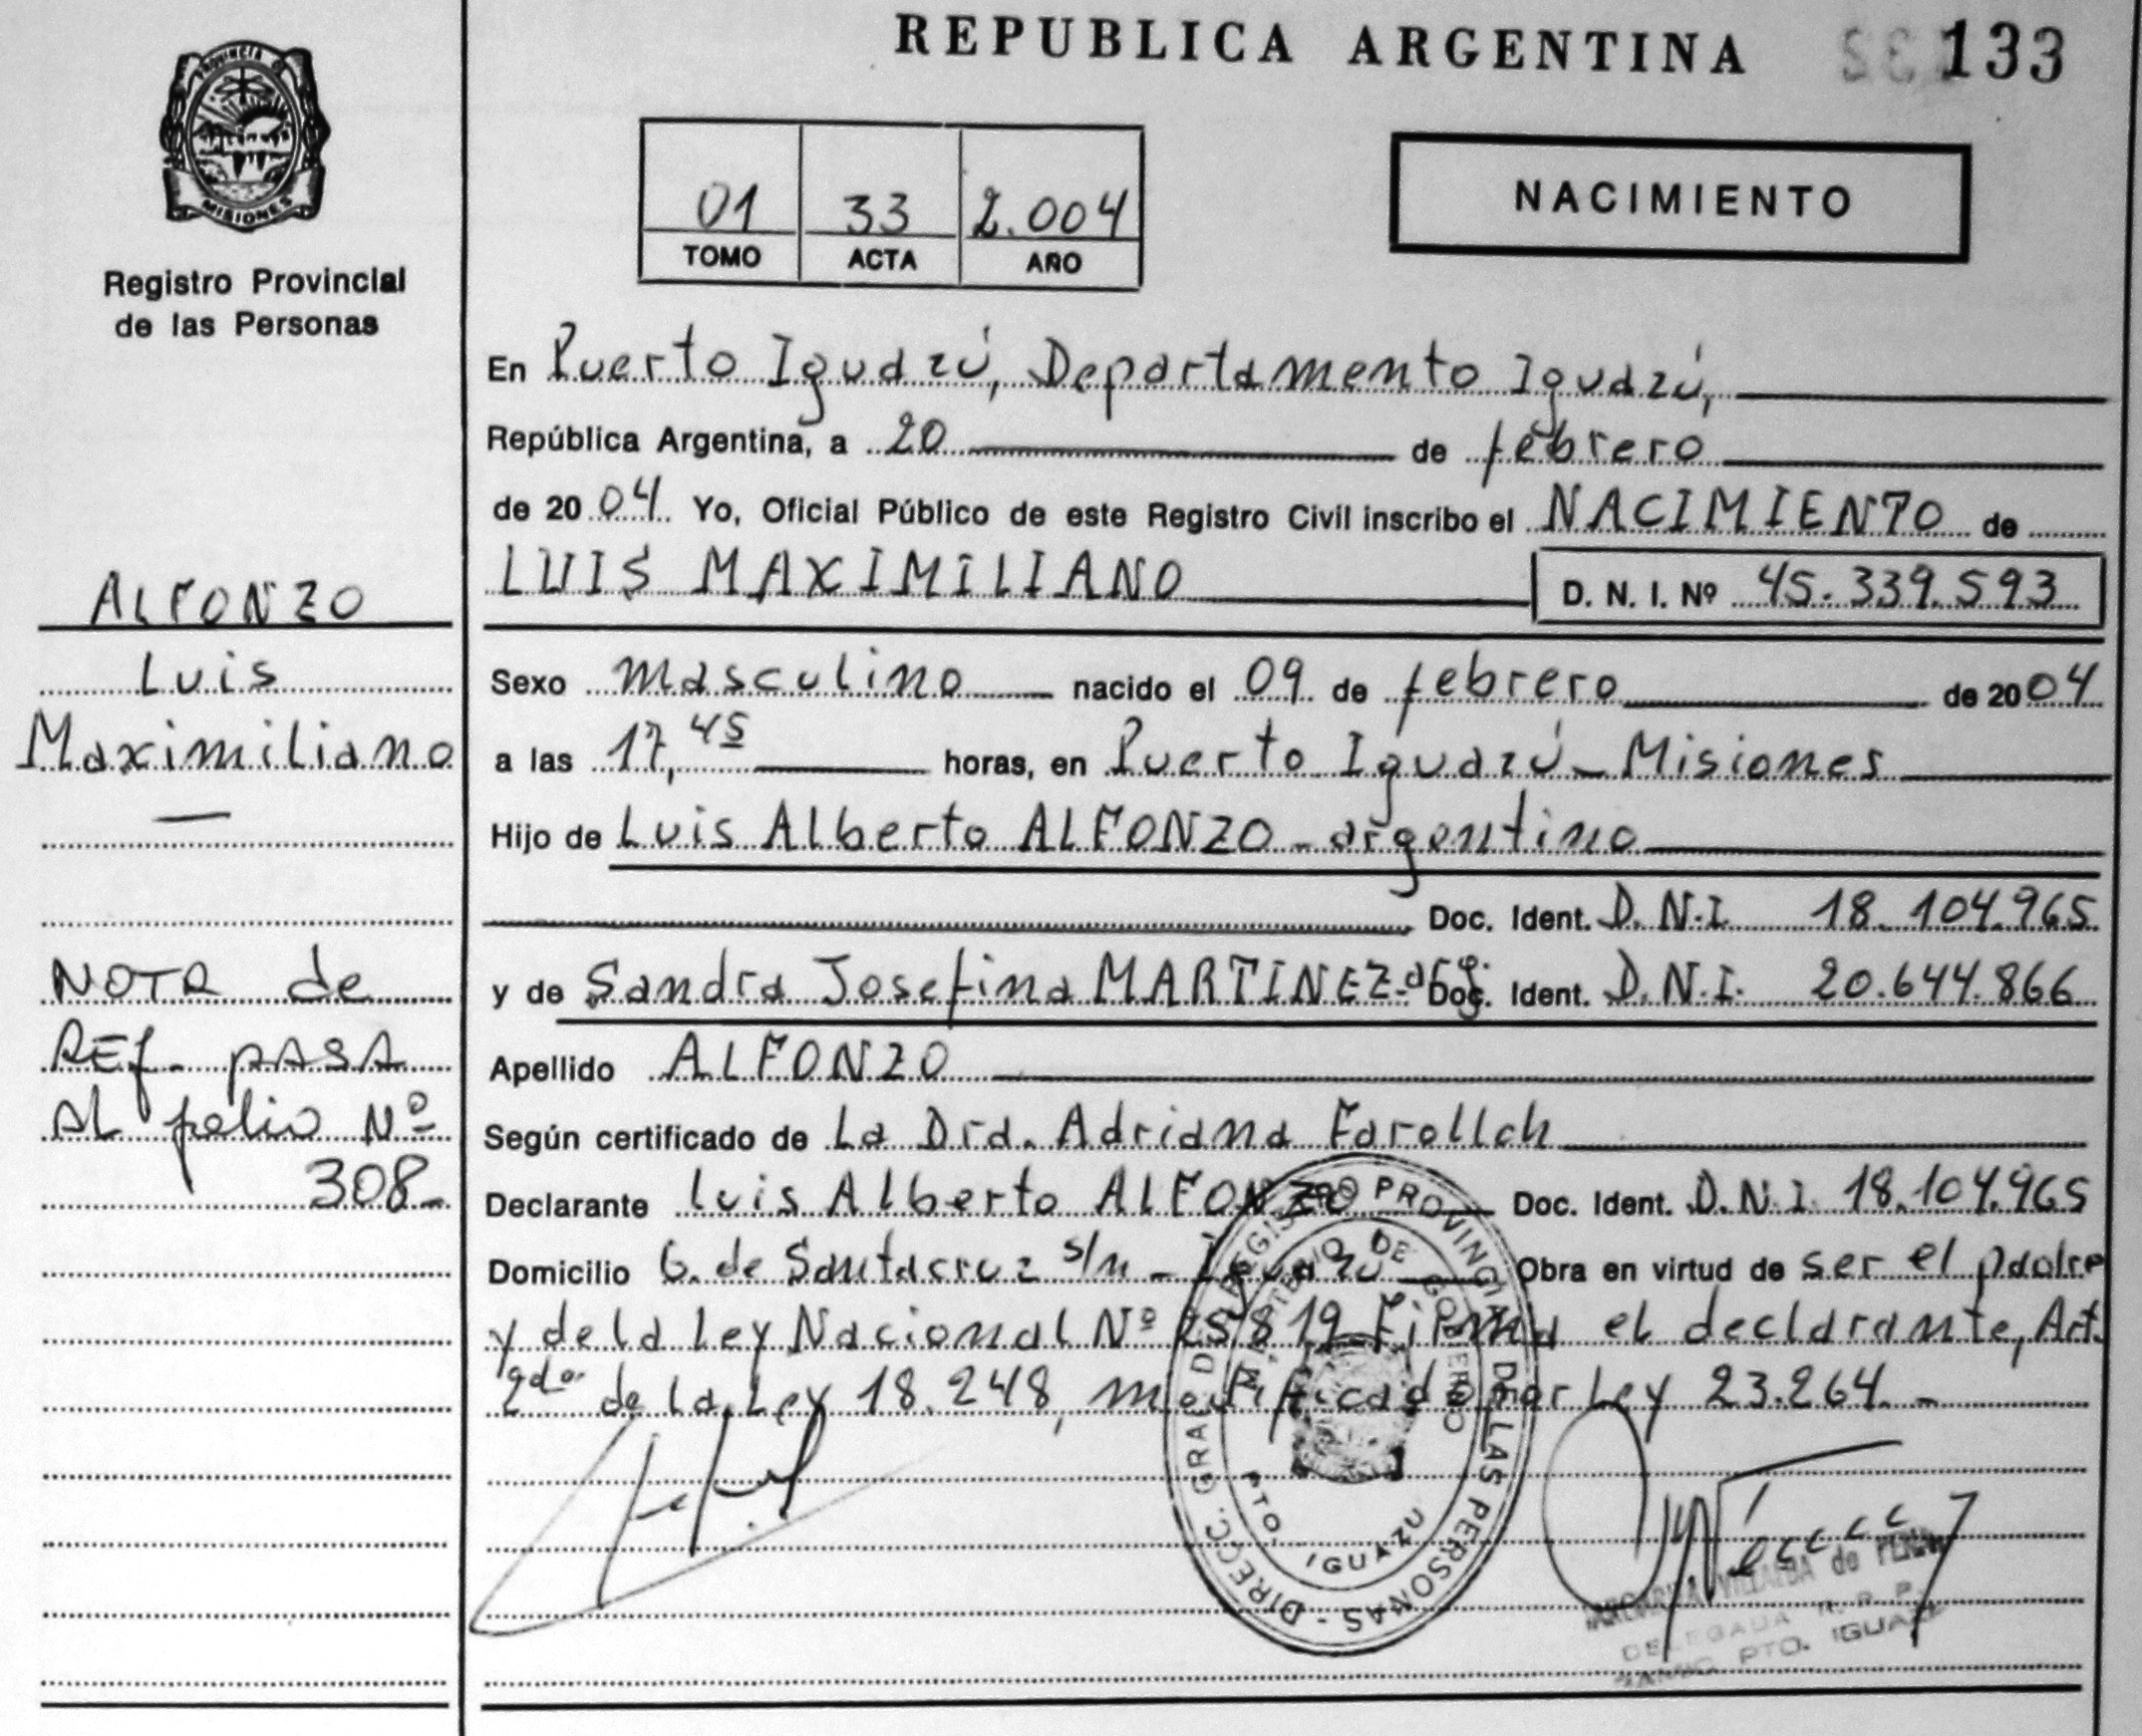 REPUBLICA ARGENTINA 133
PROVINCIA DE MISIONES
Registro Provincial
de las Personas
01 33 2.004
TOMO ACTA AÑO
NACIMIENTO
En Puerto Iguazú, Departamento Iguazú,
República Argentina, a 20 de febrero
de 2004 Yo, Oficial Público de este Registro Civil inscribo el NACIMIENTO de
LUIS MAXIMILIANO D. N. I. Nº 45.339.593
ALFONZO
Luis
Maximiliano
Sexo masculino nacido el 09 de febrero de 2004
a las 17,45 horas, en Puerto Iguazú - Misiones
Hijo de Luis Alberto ALFONZO - argentino
Doc. Ident. D.N.I. 18.104.965
y de Sandra Josefina MARTINEZ - arg. Doc. Ident. D.N.I. 20.644.866
Apellido ALFONZO
Según certificado de La Dra. Adriana
Declarante Luis Alberto ALFONZO Doc. Ident. D.N.I. 18.104.965
Domicilio G. de Santacruz s/n - Iguazú Obra en virtud de ser el padre
y de la Ley Nacional Nº 25.819 Firma el declarante, Art.
2do de la Ley 18.248, modificado por Ley 23.264.-
NOTA de
REf. pASA
AL folio Nº
308-
DIRECC. GRAL DEL REGISTRO PROVINCIAL DE LAS PERSONAS -
MINISTERIO DE GOBIERNO
PTO. IGUAZU
VILLALBA de
DELEGADA R. P. P.
PTO. IGUAZU